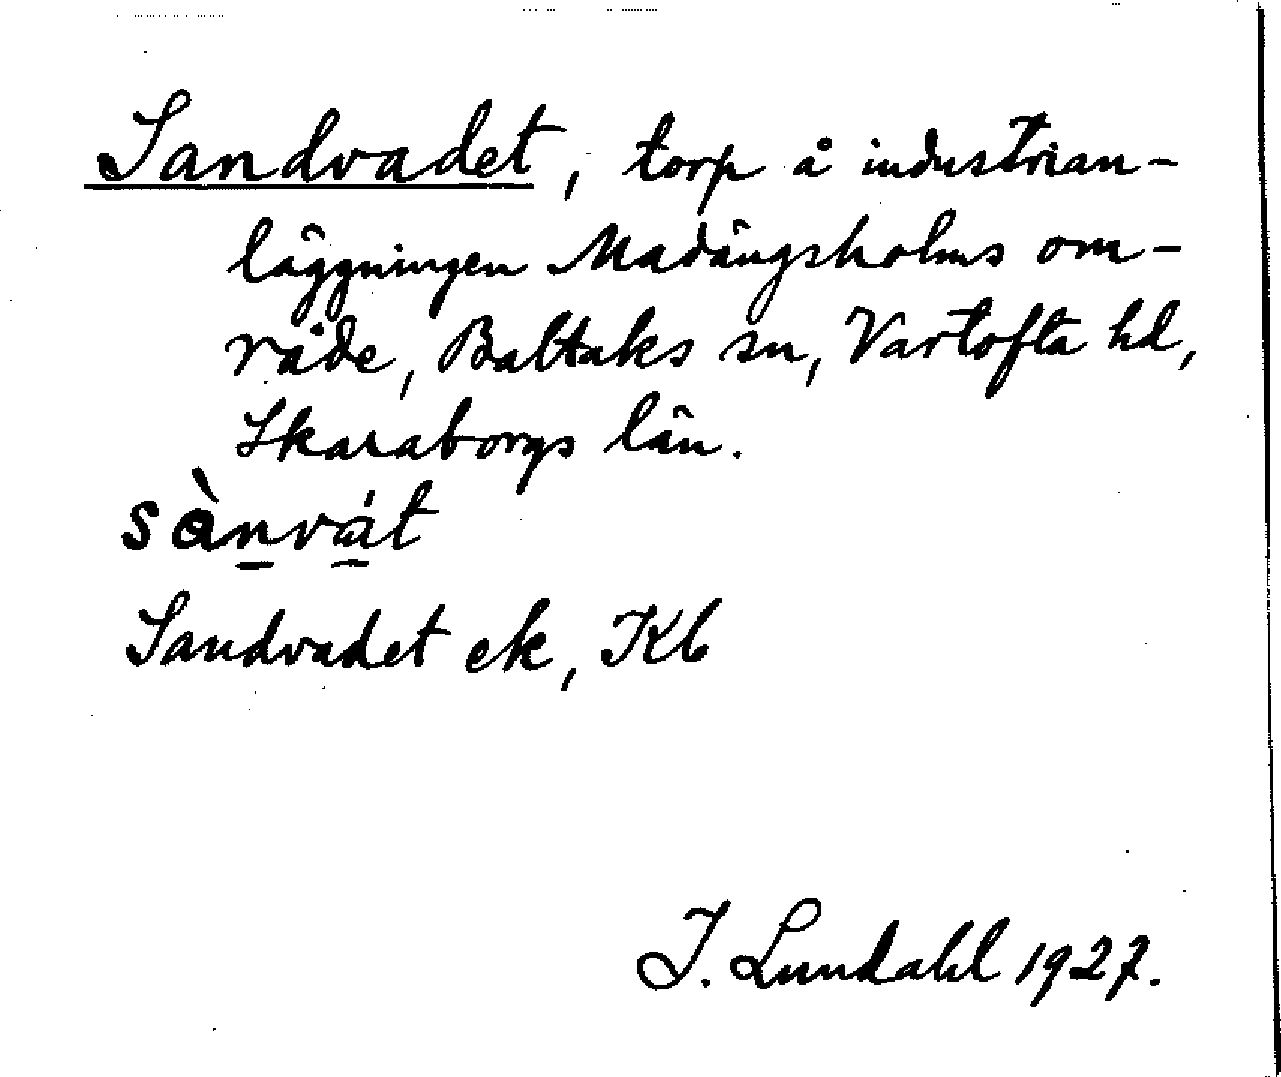 Sandvadet, torp å industrian-
läggningen Madängsholms om-
råde, Baltaks sn, Vartofta hd,
Skaraborgs län.
sànvát
Sandvadet ek, Kb
I. Lundahl 1927.